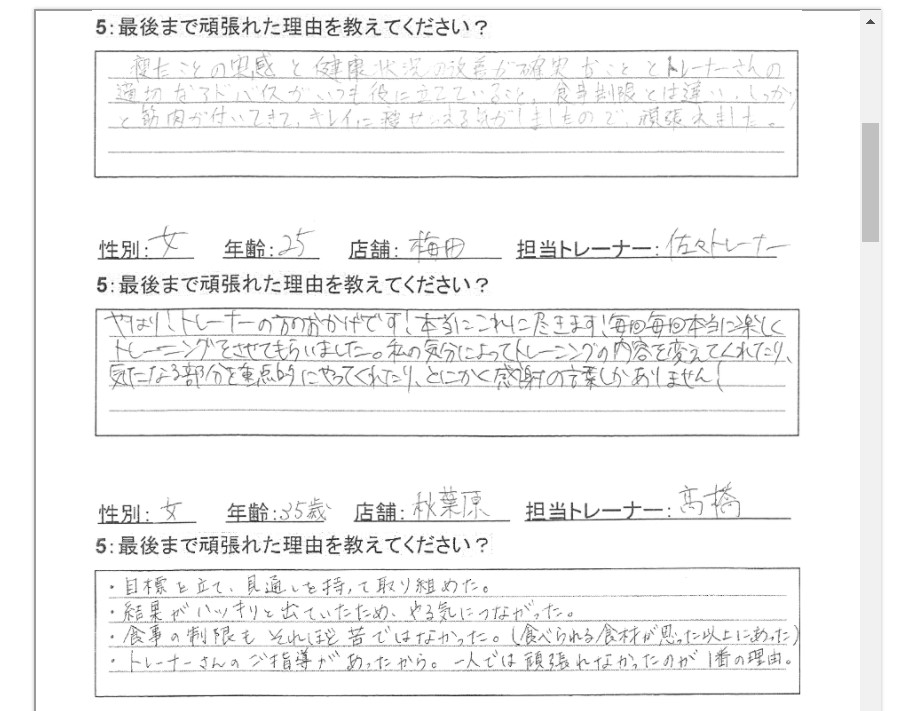 5：最後まで頑張れた理由を教えてください？
痩たことの実感と健康状況の改善が確実なこととトレーナーさんの
適切なアドバイスがいつも役に立てていること、食事制限とは違い、しっかり
と筋肉が付いてきて、キレイに痩せる気がしましたので、頑張れました。
性別：女 年齢：25 店舗：梅田 担当トレーナー：佐々トレーナー
5：最後まで頑張れた理由を教えてください？
やはり！トレーナーの方のおかげです！本当にこれに尽きます！毎回毎回本当に楽しく
トレーニングをさせてもらいました。私の気分によってトレーニングの内容を変えてくれたり、
気になる部分を重点的にやってくれたり、とにかく感謝の言葉しかありません！
性別：女 年齢：35歳 店舗：秋葉原 担当トレーナー：高橋
5：最後まで頑張れた理由を教えてください？
・目標を立て、見通しを持って取り組めた。
・結果がハッキリと出ていたため、やる気につながった。
・食事の制限もそれほど苦ではなかった。（食べられる食材が思った以上にあった）
・トレーナーさんのご指導があったから。一人では頑張れなかったのが1番の理由。